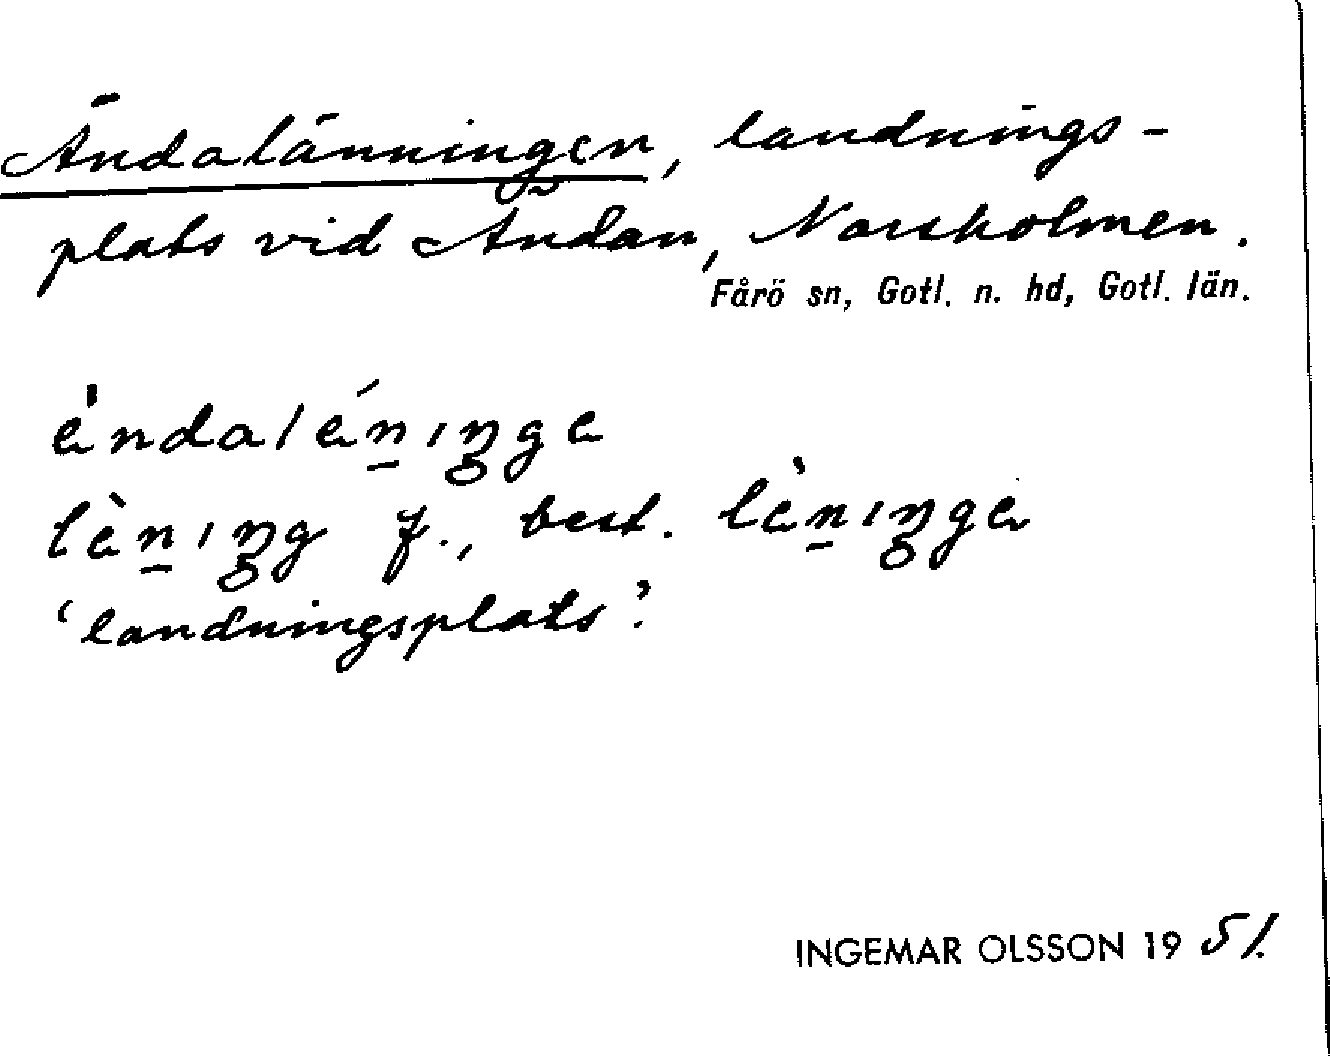 Ändalänningen, landnings-
plats vid Ändan, Norsholmen.
Fårö sn, Gotl. n. hd, Gotl. län.
èndalén̲ıŋge
lèn̲ıŋg f., best. lèn̲ıŋge
'landningsplats'.
INGEMAR OLSSON 1951.